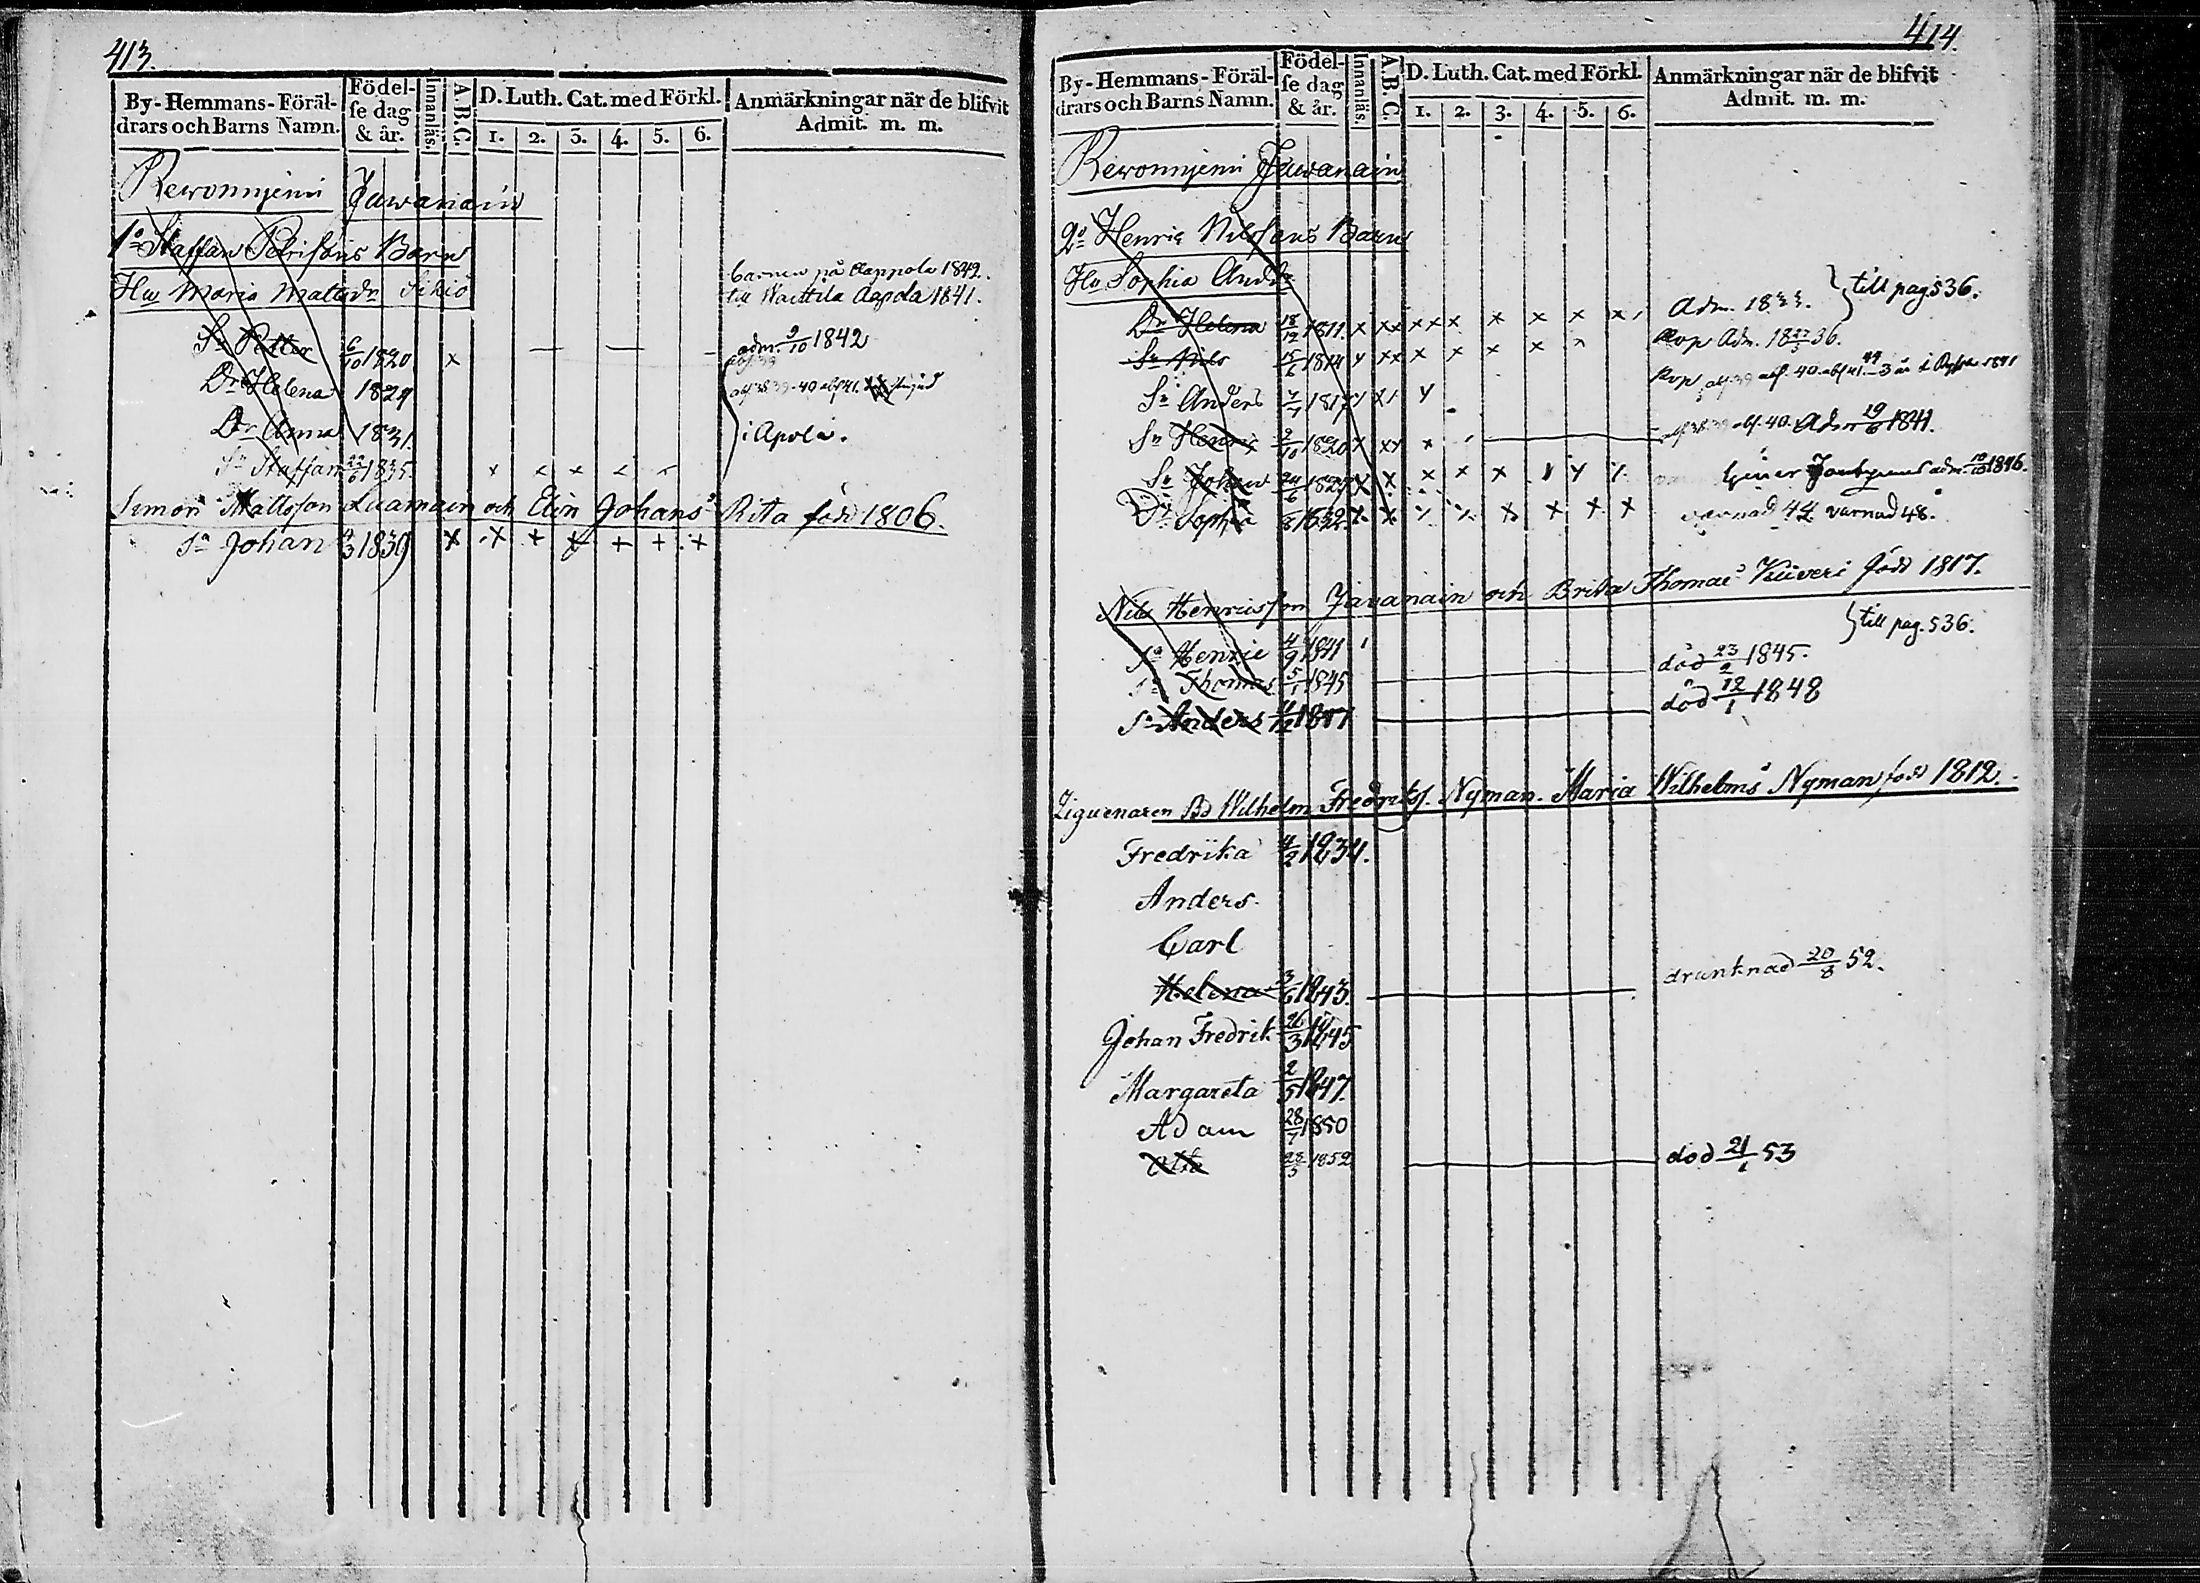 413.
By-Hemmans-Föräl-
drars och Barns Namn.
Födel-
se dag
& år.
Innanläs.
A.B.C.
D. Luth. Cat. med Förkl.
1. 2. 3. 4. 5. 6.
Anmärkningar när de blifvit
Admit. m. m.
Rewonnjemi Jawanain
1o Staffan Petrissons Barn
Hu Maria Matsdr Sikiö
barnen på Aappola 1842.
till Aapola 1841.
Sn Petter 6/10 1820 x adm. 9/10 1842
Dr Helena 1829
Dr Anna 1831.
i Apola.
Sn Staffan 1835. x x x x x
Simon Mattsson Luamain och Elin Johans Rita född 1806.
Sn Johan 1839 x x + x + + +
414.
By-Hemmans-Föräl-
drars och Barns Namn.
Födel-
se dag
& år.
Innanläs.
A.B.C.
D. Luth. Cat. med Förkl.
1. 2. 3. 4. 5. 6.
Anmärkningar när de blifvit
Admit. m. m.
Rewonnjemi Jawanain
2o Henric Nilssons Barn
Hu Sophia Andsdr
till pag 536.
Dr Helena 18/12 1811. x xx xx x x x x x Adm. 1833.
Sn Nils 1814 x xx x x x x x Kop Adm. 1836.
Sn Anders 1817
Sn Henric 2/10 1820 x xx x 40. Adm 19/6 1841.
Sn Johan 24/6 1827 x x x x x x x x adm. 10/10 1846.
Dr Sophia 1832 x x x x x x x x varnad 44 varnad 48.
Nils Henricsson Javanain och Brita Thomæ Kiiveri född 1817.
till pag. 536.
Sn Henric 4/9 1841
Sn Thomas 5/1 1845 död 23/2 1845.
Sn Anders 1847 död 12/1 1848
Ziguenaren Bd Wilhelm Fredriks. Nyman. Maria Wilhelms Nyman född 1812.
Fredrika 4/2 1834.
Anders.
Carl
Helena 3/6 1843. drunknad 20/8 52.
Johan Fredrik 26/3 1845
Margareta 2/5 1847.
Adam 28/7 1850
Otto 28/3 1852 död 21/1 53